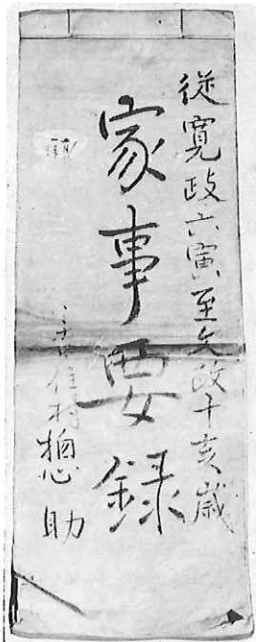 従寛政六寅至文政十亥歳
家事要録
住村惣助